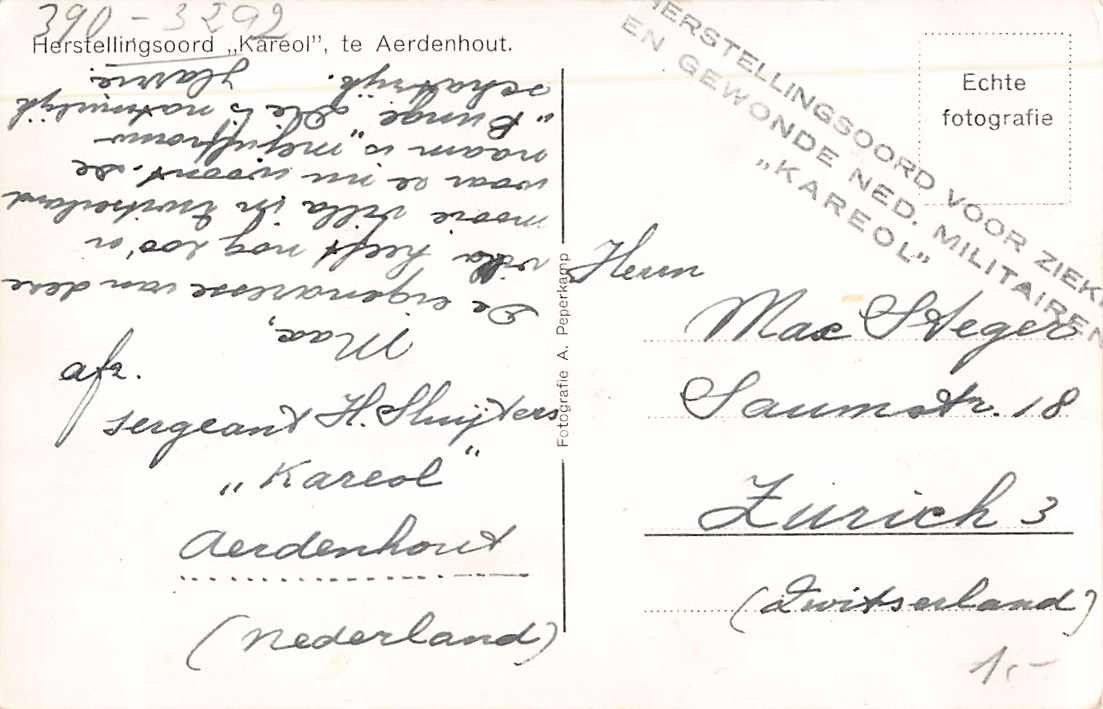 390-3292
Herstellingsoord „Kareol”, te Aerdenhout.
Max,
De eigenaresse van deze
villa heeft nog zoo'n
mooie villa in Zwitserland
waar ze nu woont. De
naam is „mejuffrouw
"Bunge". Die is natuurlijk
schatrijk. Harrie.
afz.
sergeant H. Sluijters
"Kareol"
Aerdenhout
(Nederland)
Fotografie A. Peperkamp
HERSTELLINGSOORD VOOR ZIEKE
EN GEWONDE NED. MILITAIREN
„KAREOL”
Echte
fotografie
Herrn
Max Steger
Saumstr. 18
Zürich 3
(Zwitserland)
1.-